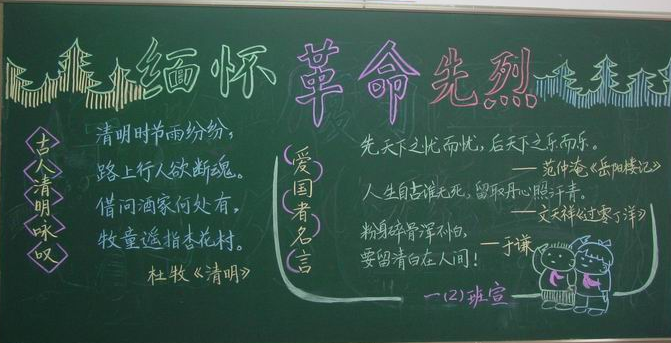 缅怀革命先烈
古人清明咏叹
清明时节雨纷纷，
路上行人欲断魂。
借问酒家何处有，
牧童遥指杏花村。
杜牧《清明》
爱国者名言
先天下之忧而忧，后天下之乐而乐。
——范仲淹《岳阳楼记》
人生自古谁无死，留取丹心照汗青。
——文天祥《过零丁洋》
粉身碎骨浑不怕，
要留清白在人间！
——于谦
一(2)班宣